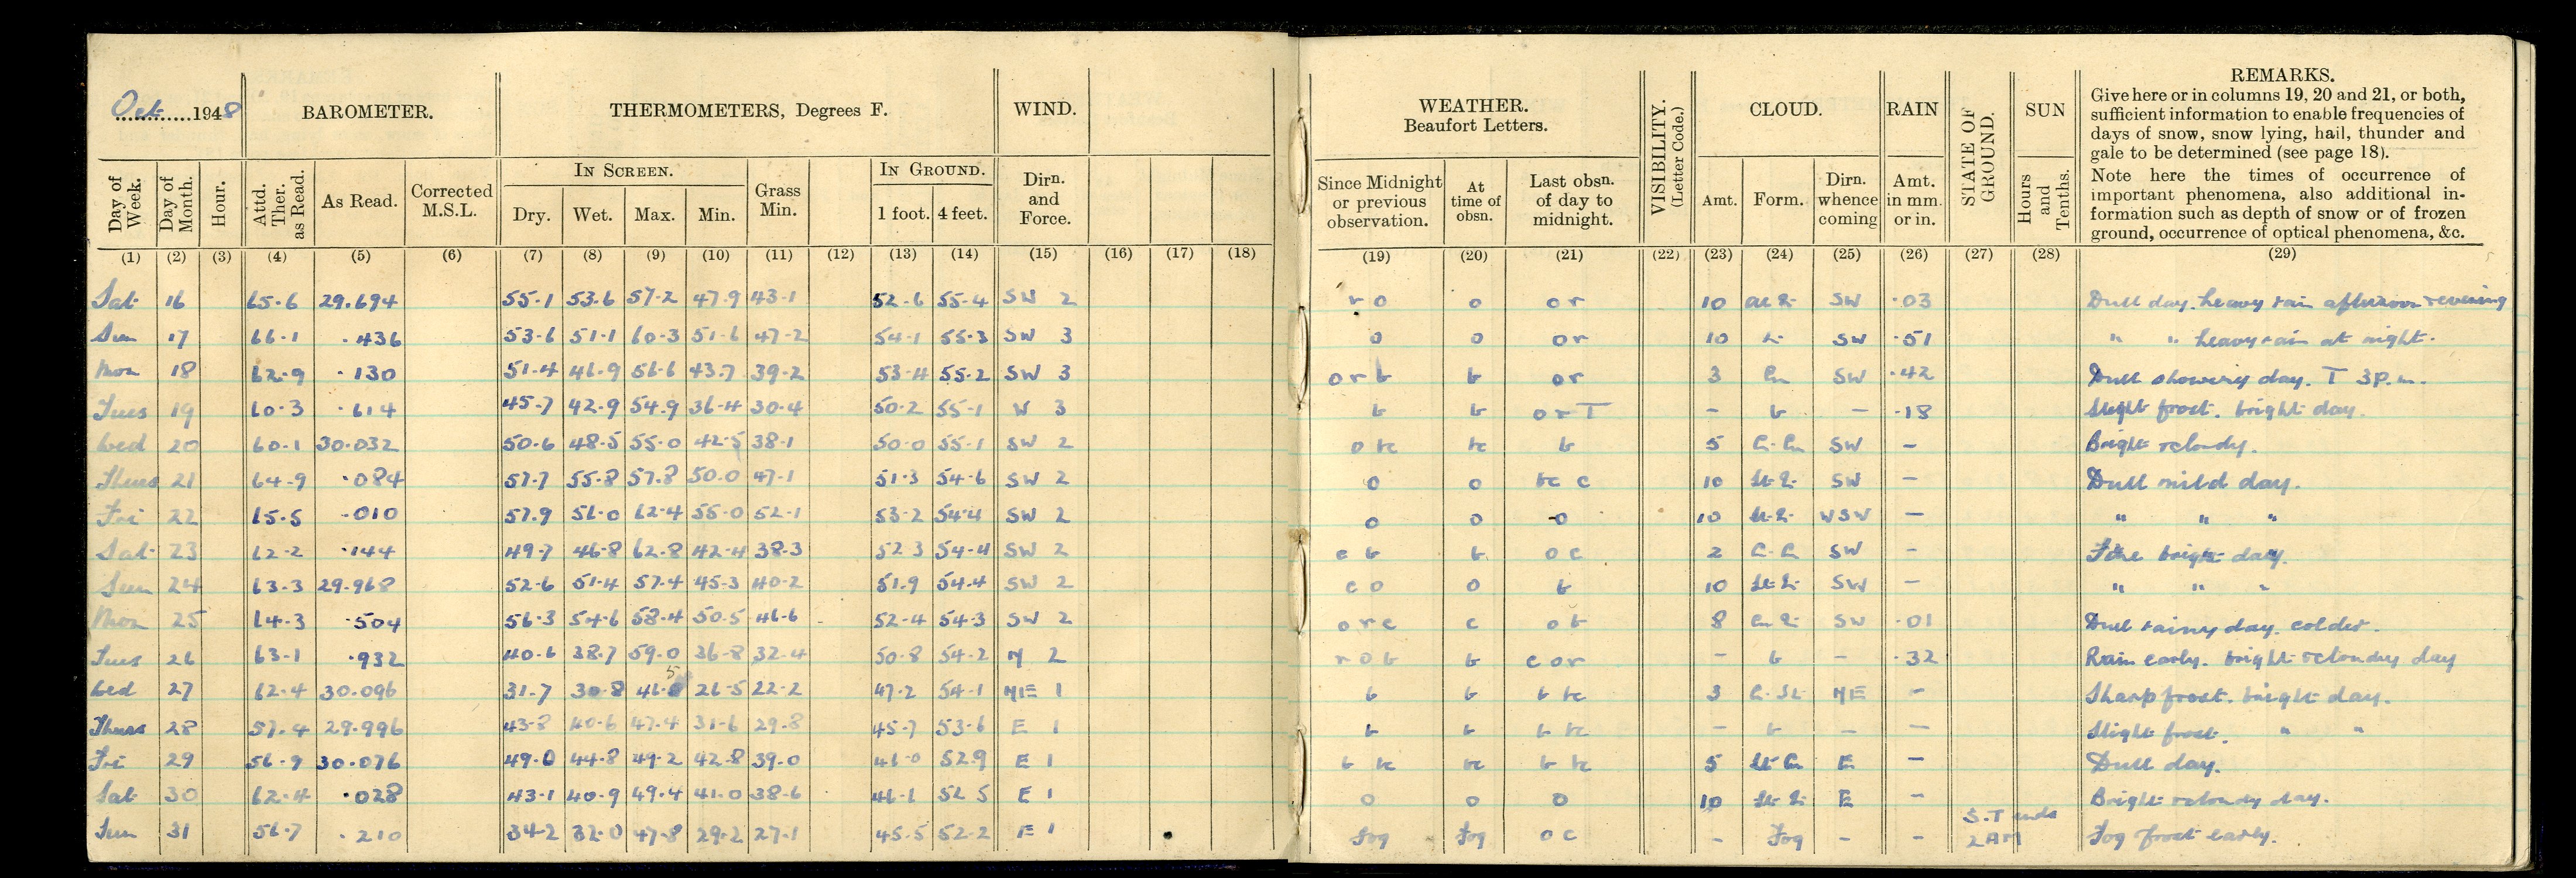 Oct 1948
BAROMETER.
THERMOMETERS, Degrees F.
WIND.
WEATHER.
Beaufort Letters.
VISIBILITY.
(Letter Code.)
CLOUD.
RAIN
STATE OF
GROUND.
SUN
REMARKS.
Give here or in columns 19, 20 and 21, or both,
sufficient information to enable frequencies of
days of snow, snow lying, hail, thunder and
gale to be determined (see page 18).
Note here the times of occurrence of
important phenomena, also additional in-
formation such as depth of snow or of frozen
ground, occurrence of optical phenomena, &c.
Day of Week.
Day of Month.
Hour.
Attd. Ther. as Read.
As Read.
Corrected M.S.L.
IN SCREEN.
Dry. Wet. Max. Min.
Grass Min.
IN GROUND.
1 foot. 4 feet.
Dirn. and Force.
Since Midnight or previous observation.
At time of obsn.
Last obsn. of day to midnight.
Amt. Form.
Dirn. whence coming
Amt. in mm. or in.
Hours and Tenths.
(1) (2) (3) (4) (5) (6) (7) (8) (9) (10) (11) (12) (13) (14) (15) (16) (17) (18) (19) (20) (21) (22) (23) (24) (25) (26) (27) (28) (29)
Sat 16 65.6 29.694 55.1 53.6 57.2 47.9 43.1 52.6 55.4 SW 2 r o o o r 10 SW .03 Dull day. heavy rain afternoon & evening
Sun 17 66.1 .436 53.6 51.1 60.3 51.6 47.2 54.1 55.3 SW 3 o o o r 10 SW .51 " " heavy rain at night.
Mon 18 62.9 .130 51.4 46.9 56.6 43.7 39.2 53.4 55.2 SW 3 o r b b o r 3 Cu SW .42 Dull showery day. T 3P.m.
Tues 19 60.3 .614 45.7 42.9 54.9 36.4 30.4 50.2 55.1 W 3 b b o r T - b - .18 Slight frost. bright day.
Wed 20 60.1 30.032 50.6 48.5 55.0 42.5 38.1 50.0 55.1 SW 2 o bc bc b 5 SW - Bright & cloudy.
Thurs 21 64.9 .084 57.7 55.8 57.8 50.0 47.1 51.3 54.6 SW 2 o o bc c 10 SW - Dull mild day.
Fri 22 65.5 .010 57.9 56.0 62.4 55.0 52.1 53.2 54.4 SW 2 o o o 10 WSW - " " "
Sat 23 62.2 .144 49.7 46.8 62.8 42.4 38.3 52.3 54.4 SW 2 c b b o c 2 SW - Fine bright day.
Sun 24 63.3 29.968 52.6 51.4 57.4 45.3 40.2 51.9 54.4 SW 2 c o o b 10 SW - " " "
Mon 25 64.3 .504 56.3 54.6 58.4 50.5 46.6 52.4 54.3 SW 2 o r c c o b 8 SW .01 Dull rainy day. colder.
Tues 26 63.1 .932 40.6 38.7 59.0 36.8 32.4 50.8 54.2 N 2 r o b b c o r - b - .32 Rain early. bright & cloudy day
Wed 27 62.4 30.096 31.7 30.8 46.5 26.5 22.2 47.2 54.1 NE 1 b b b bc 3 NE - Sharp frost. bright day.
Thurs 28 57.4 29.996 43.8 40.6 47.4 31.6 29.8 45.7 53.6 E 1 b b b bc - b - - Slight frost. " "
Fri 29 56.9 30.076 49.0 44.8 49.2 42.8 39.0 46.0 52.9 E 1 b bc bc b bc 5 E - Dull day.
Sat 30 62.4 .028 43.1 40.9 49.4 41.0 38.6 46.1 52.5 E 1 o o o 10 E - Bright & cloudy day.
Sun 31 56.7 .210 34.2 32.0 47.8 29.2 27.1 45.5 52.2 E 1 Fog Fog o c - Fog - - S.T ends 2AM Fog frost early.